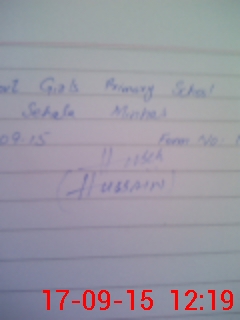 Girls Primary School
Sehala Minhas
09-15 Form No.
(Hussain)
17-09-15 12:19